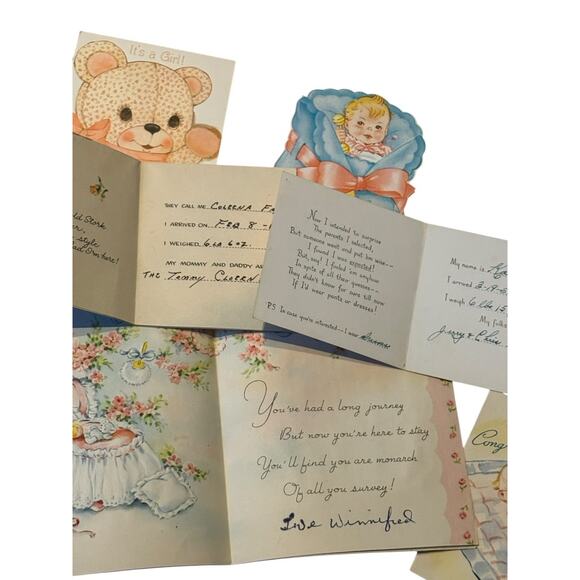 It's a Girl!
ld Stork
style
ad I'm here!
THEY CALL ME Coleena Fa
I ARRIVED ON Feb 8 -
I WEIGHED 6 LB 6 oz.
MY MOMMY AND DADDY A
THE Tommy C
Now I intended to surprise
The parents I selected,
But someone went and put 'em wise—
I found I was expected!
But, say! I fooled 'em anyhow
In spite of all their guesses—
They didn't know for sure till now
If I'd wear pants or dresses!
P.S. In case you're interested—I wear
My name is
I arrived 2-19-5
I weigh 6 lbs 15
My folks
Jerry & Chris
You've had a long journey
But now you're here to stay
You'll find you are monarch
Of all you survey!
Love Winnifred
Cong